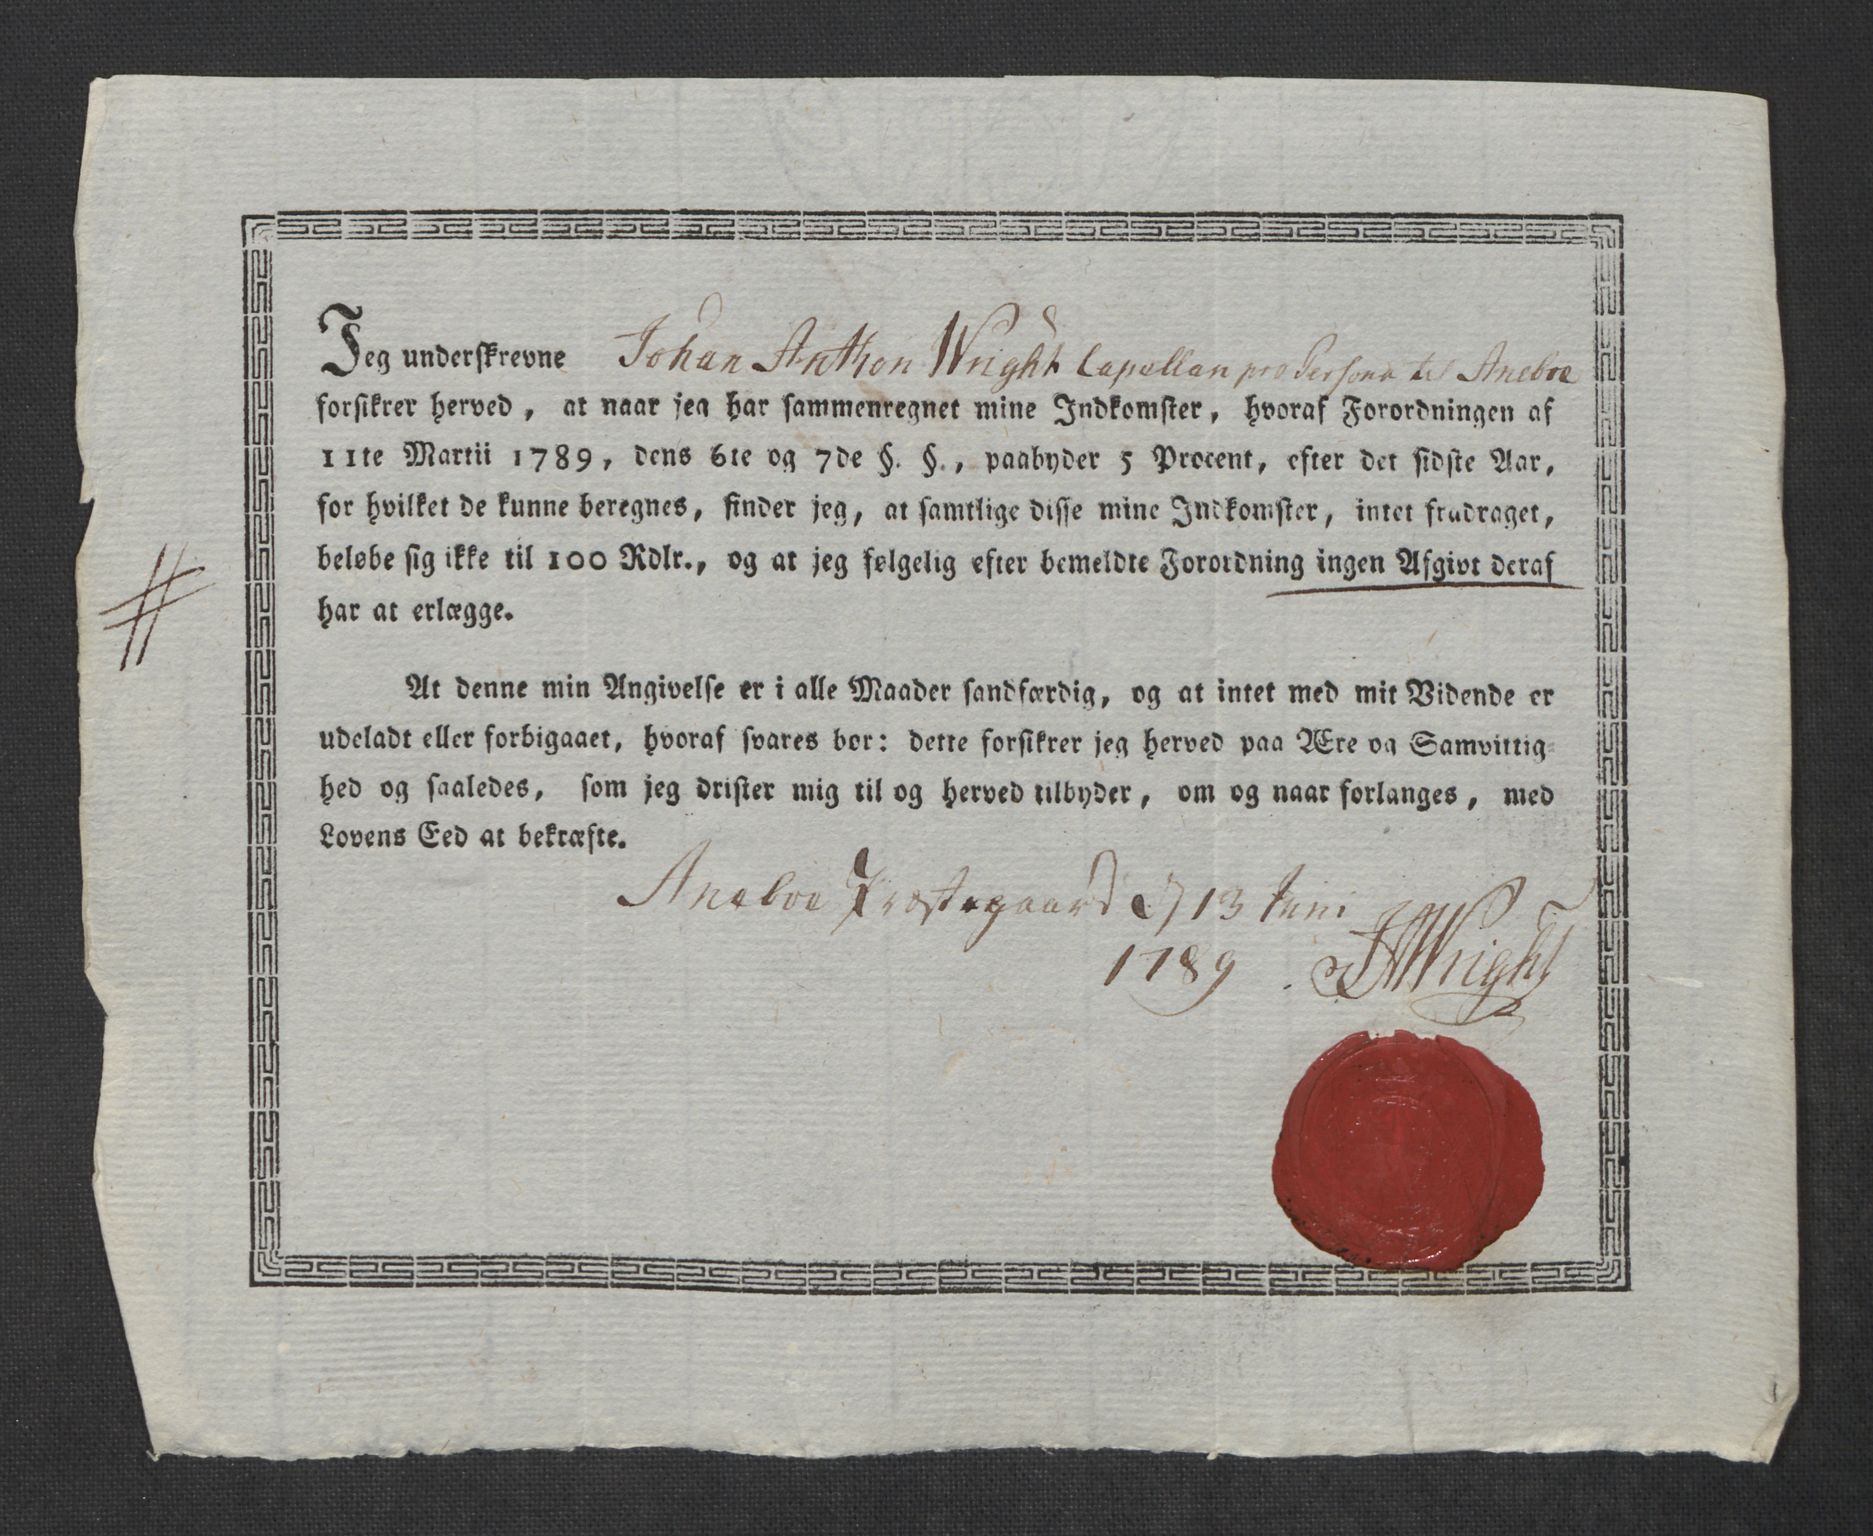 Jeg underskrevne Johan Anthon Wright Capellan pro Persona til Aneboe
forsikrer herved, at naar jeg har sammenregnet mine Indkomster, hvoraf Forordningen af
11te Martii 1789, dens 6te og 7de §. §., paabyder 5 Procent, efter det sidste Aar,
for hvilket de kunne beregnes, finder jeg, at samtlige disse mine Indkomster, intet fradraget,
beløbe sig ikke til 100 Rdlr., og at jeg følgelig efter bemeldte Forordning ingen Afgivt deraf
har at erlægge.
At denne min Angivelse er i alle Maader sandfærdig, og at intet med mit Vidende er
udeladt eller forbigaaet, hvoraf svares bør: dette forsikrer jeg herved paa Ære og Samvittig-
hed og saaledes, som jeg drister mig til og herved tilbyder, om og naar forlanges, med
Lovens Eed at bekræfte.
Aneboe Præstegaard d 13 Juni
1789 JAWright